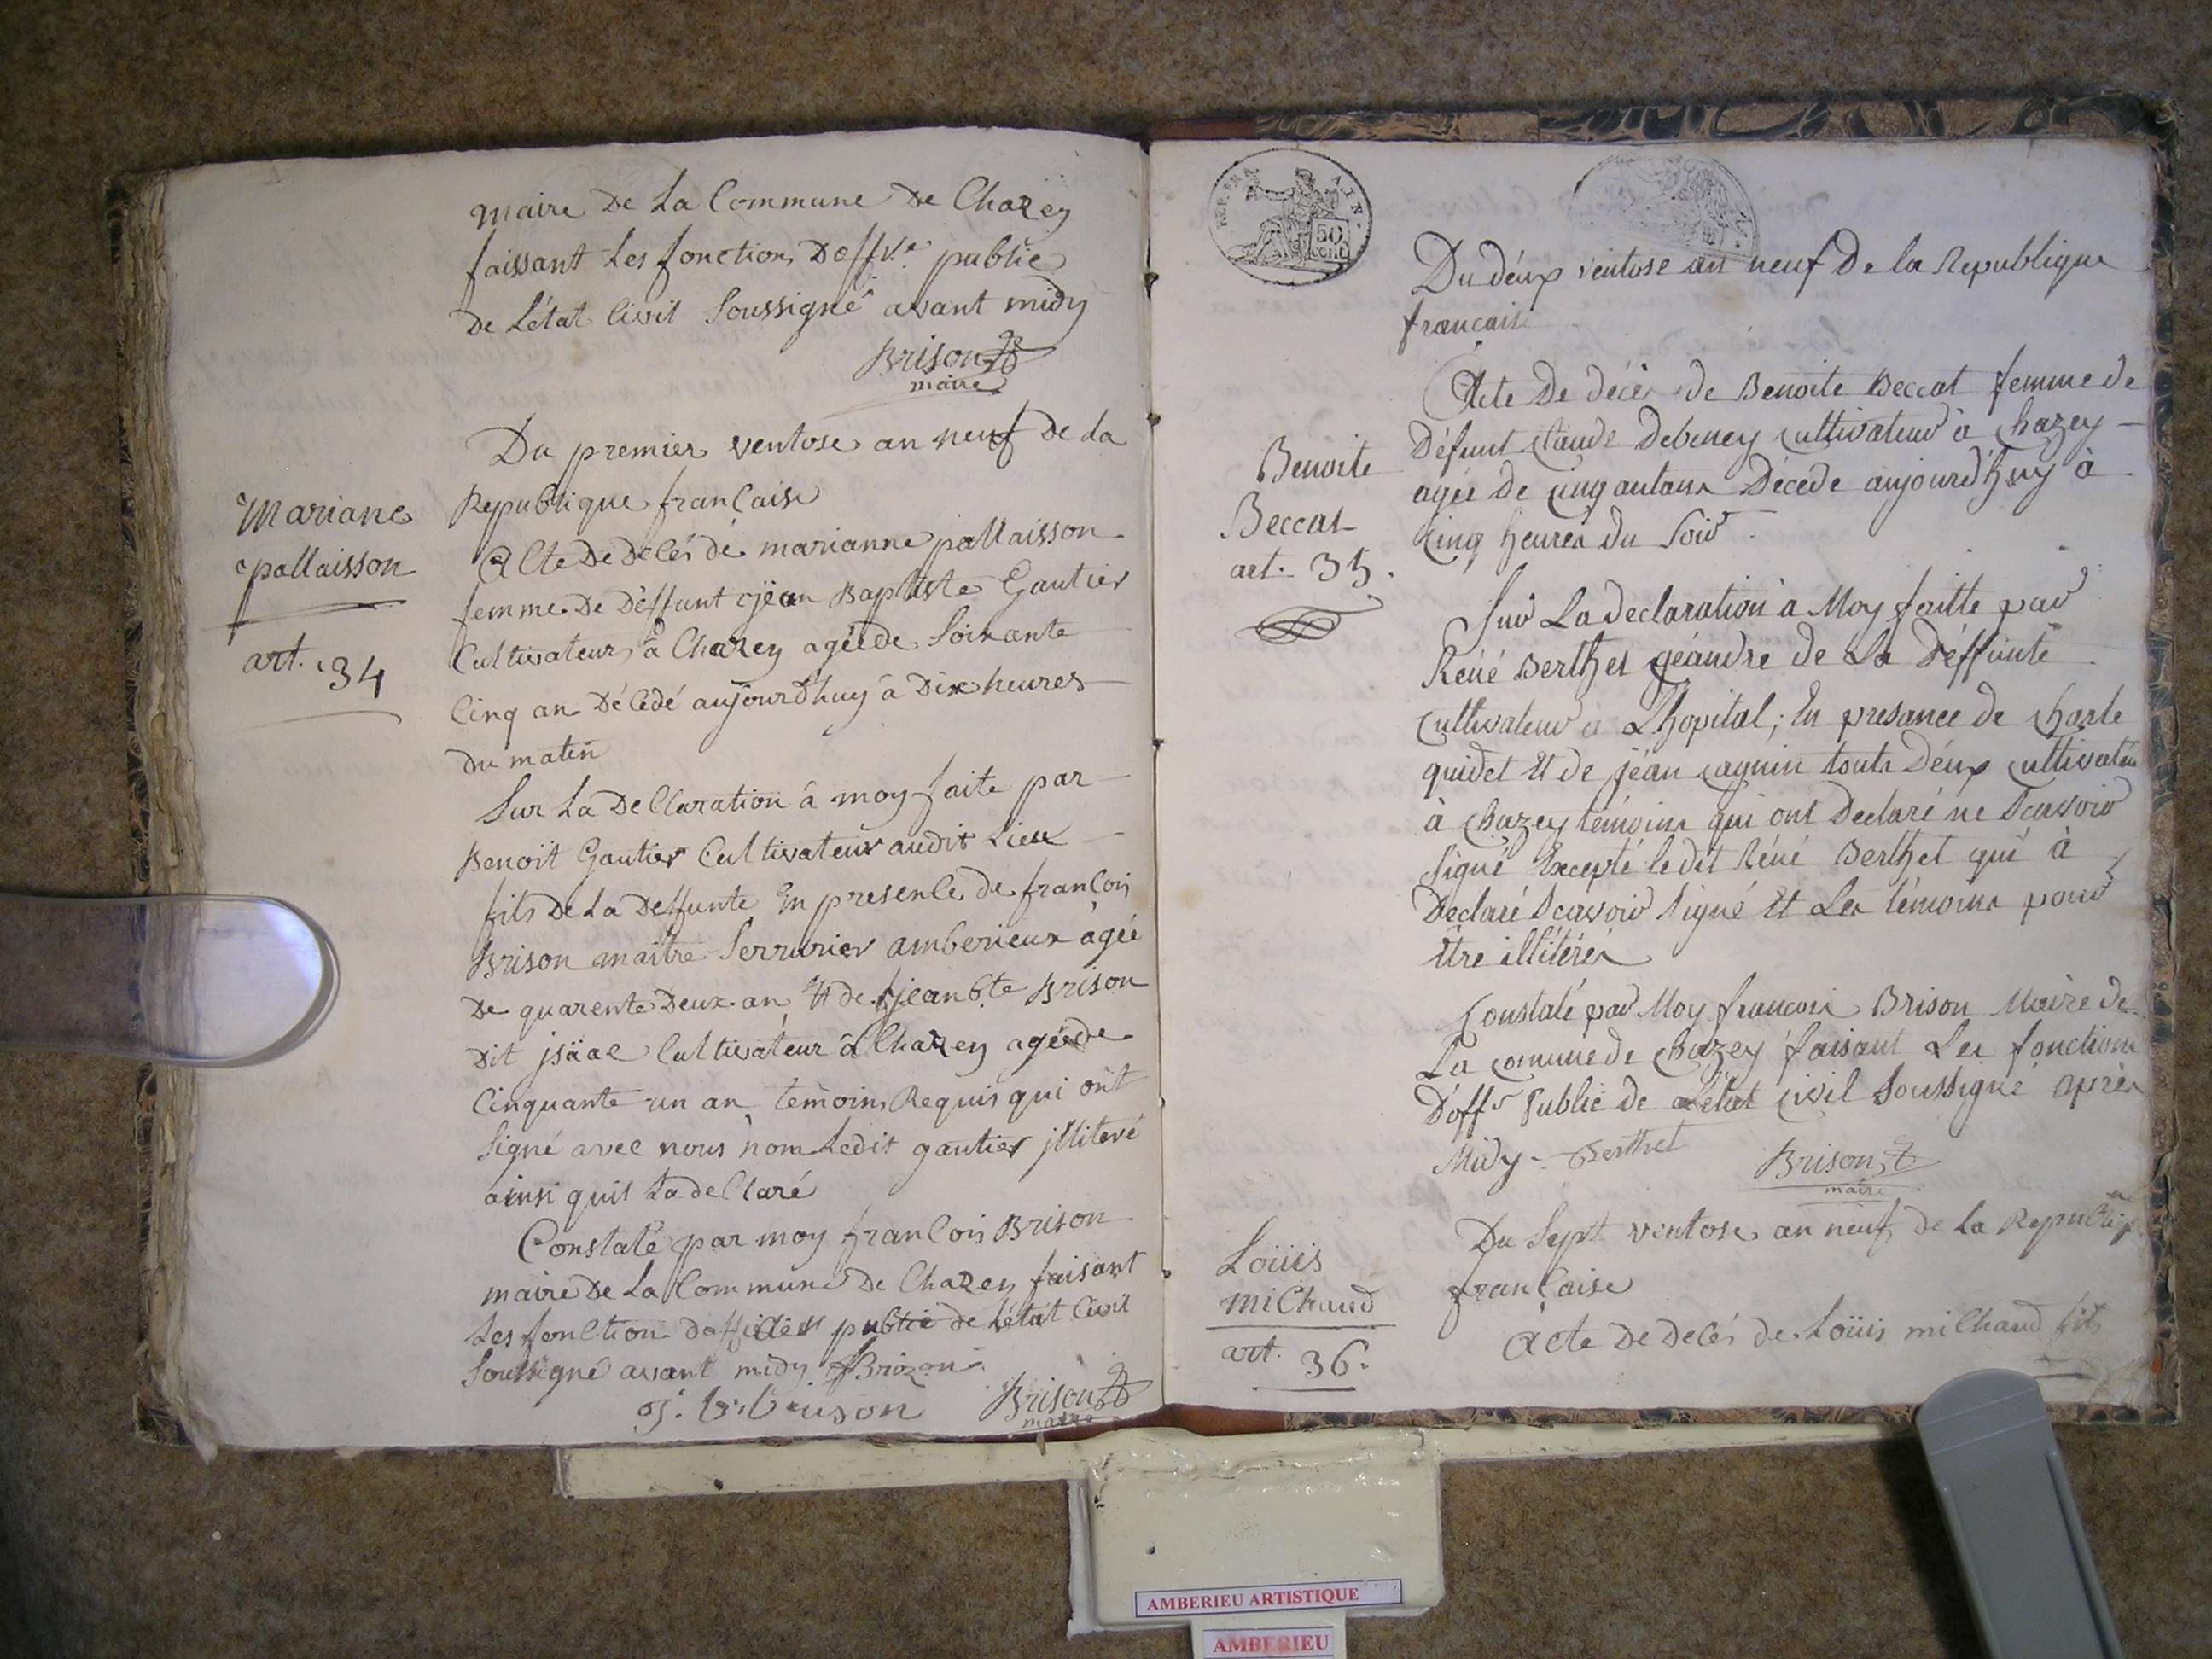 maire De La Commune De Chazey
faissant Les fonction Doffr.e public
De L'état Civil Soussigné avant midy
Brison
maire
Du premier ventose an neuf De La
Republique francaise
Mariane
pallaisson
art. 34
Acte De Décés de marianne pallaisson
femme De Déffunt jéan Baptiste Gautier
Cultivateur à Chazey agéé de Soixante
Cinq an Décédé aujourd'huy à Dix heures
du matin
Sur La Declaration à moy faite par
Benoit Gautier Cultivateur audit Lieu
fils De La Deffunte En presence de francois
Brison maître Serrurier amberieux àgéé
De quarente Deux an Et de jean b.te Brison
Dit jsäac Cultivateur à Chazey agéé de
Cinquante un an temoins Requis qui ont
Signé avec nous nom Ledit gautier jlliteré
ainsi quil La declaré
Constaté par moy francois Brison
maire De La Commune De Chazey faisant
Les fonction dofficier public de L'état Civil
Soussigné avant midy fBrizon
j. b. brison
Brison
maire
REP. FRA. AIN.
50
cent.
Du déux ventose an neuf De la Republique
francaise
Benoite
Beccat
art. 35.
Acte De décès de Benoite Beccat femme de
Défunt Claude Debeney cultivateur à Chazey
agée de cinquantans Décéde aujourd'huy à
Cinq heures du Soir
Sur La declaration à Moy faitte par
Réné Berthet géandre de La Déffunte
cultivateur à Lhopital; En presance de Charle
quidet Et de jéan cagnin touts Déux cultivateur
à Chazey témoins qui ont Declaré ne Scavoir
Signé Excepté ledit Réné Berthet qui à
Declaré Scavoir Signé Et Les témoins pour
Etre illitérés
Constaté par Moy francois Brison Maire de
La comune de Chazey faisant Les fonctions
D'offr Public de L'état civil Soussigné après
Midy - Berthet
Brison
maire
Du Sept ventose an neuf de La Republique
francaise
Loüis
miChaud
art. 36.
Acte De Decés de Loüis miChaud fils
AMBERIEU ARTISTIQUE
AMBERIEU